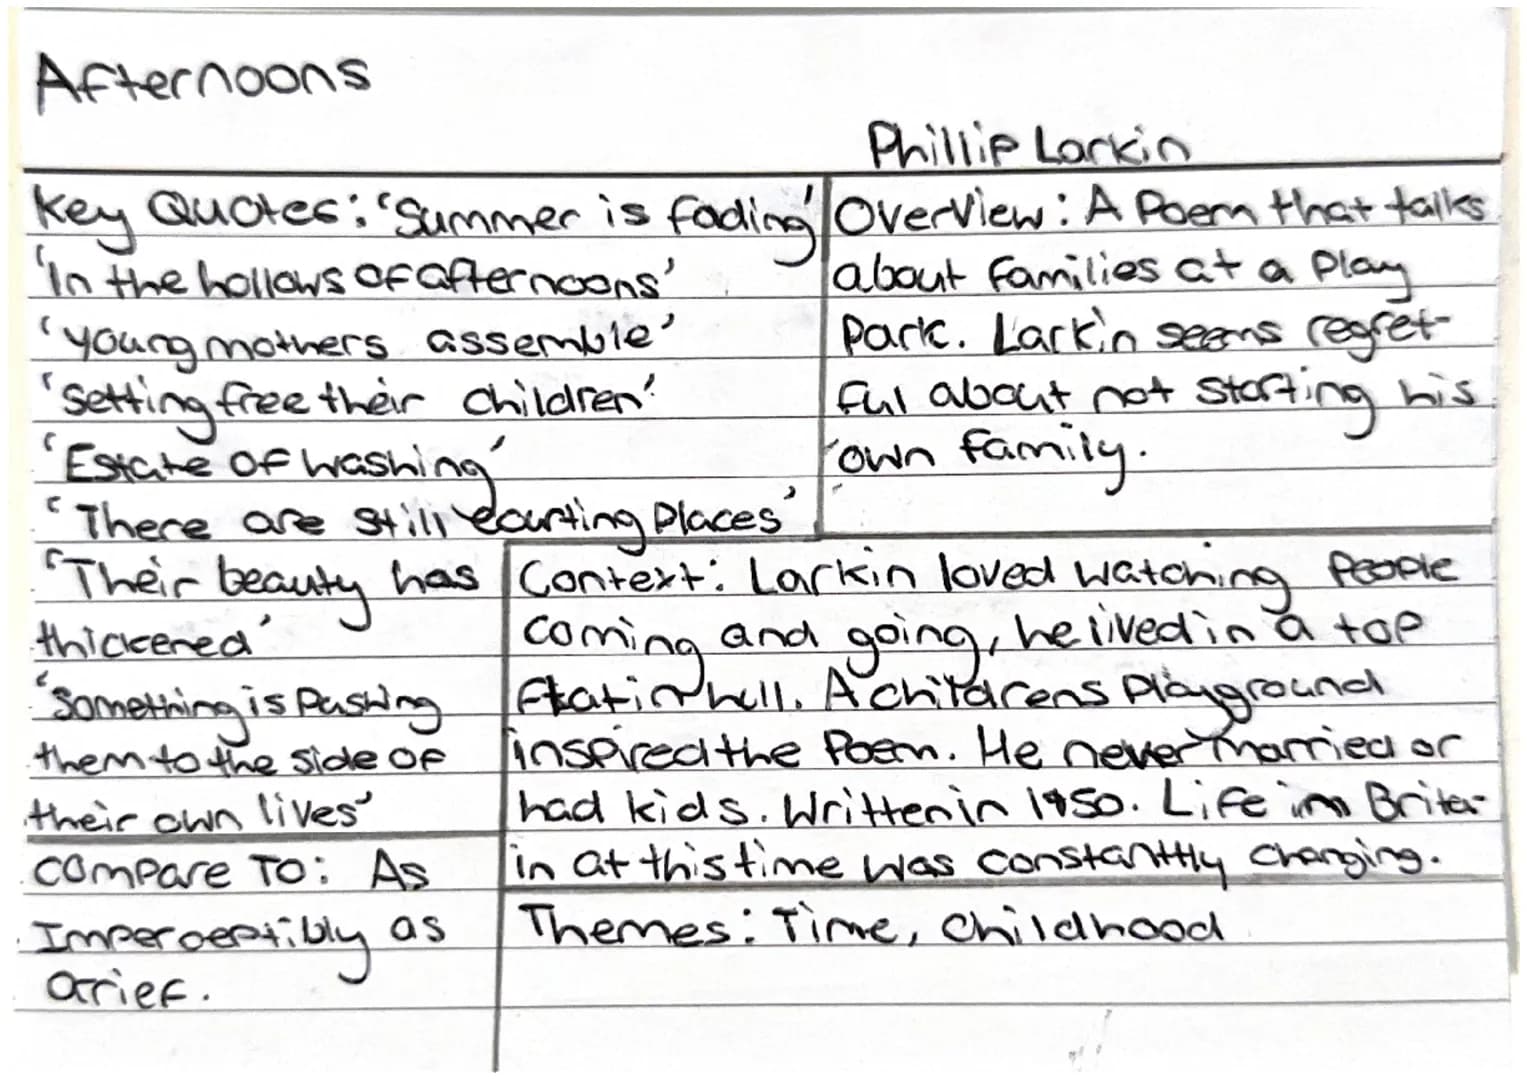 Afternoons
Phillip Larkin
Key Quotes: 'Summer is fading'
'In the hollows of afternoons'
'young mothers assemble'
'Setting free their children'
'Estate of washing'
'There are still courting places'
'Their beauty has
thickened'
'Something is pushing
them to the side of
their own lives'
Overview: A Poem that talks
about families at a play
park. Larkin seems regret-
ful about not starting his
own family.
Context: Larkin loved watching people
coming and going, he lived in a top
flat in hull. A childrens playground
inspired the poem. He never married or
had kids. Written in 1950. Life in Brita-
in at this time was constanttly changing.
Compare To: As
Imperceptibly as
Grief.
Themes: Time, Childhood